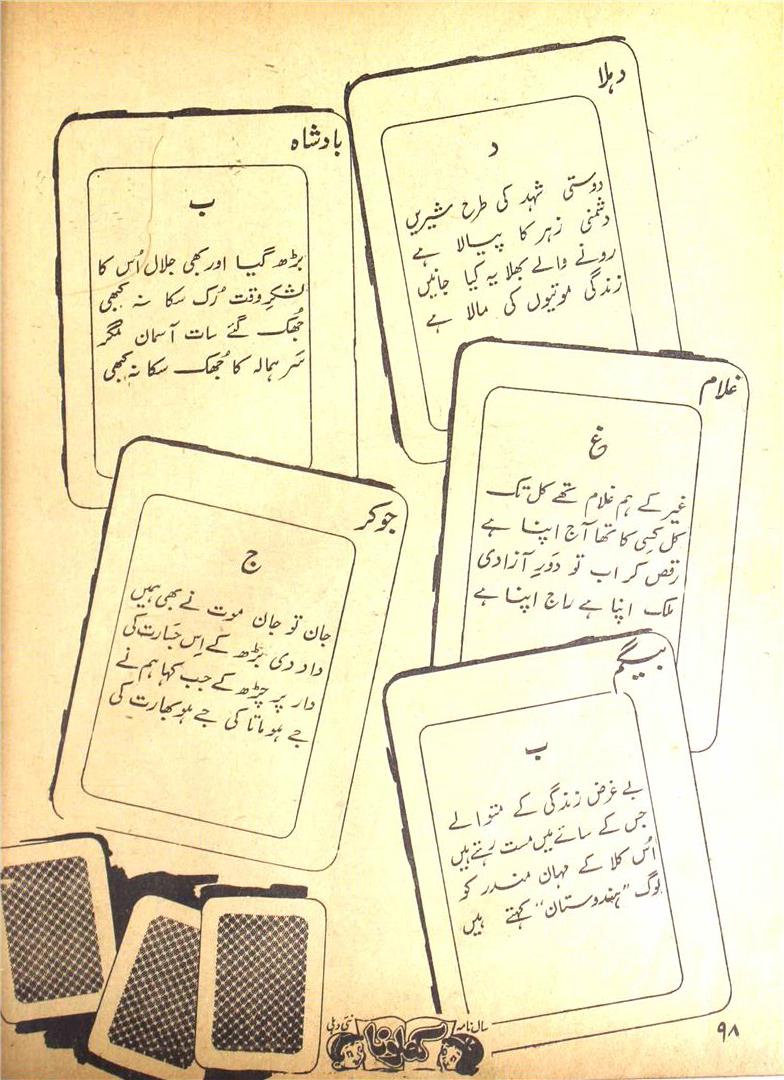 دہلا
د
دوستی شہد کی طرح شیریں
دشمنی زہر کا پیالا ہے
رونے والے بھلا یہ کیا جانیں
زندگی موتیوں کی مالا ہے
بادشاہ
ب
بڑھ گیا اور بھی جلال اُس کا
لشکرِ وقت رُک سکا نہ کبھی
جُھک گئے سات آسمان مگر
سَر ہمالہ کا جُھک سکا نہ کبھی
غلام
غ
غیر کے ہم غلام تھے کل تک
کل کسی کا تھا آج اپنا ہے
رقص کر اب تو دَورِ آزادی
ملک اپنا ہے راج اپنا ہے
جوکر
ج
جان تو جان موت نے بھی ہمیں
داد دی بڑھ کے اِس جسارت کی
دار پر چڑھ کے جب کہا ہم نے
جے ہو ماتا کی جے ہو بھارت کی
بیگم
ب
بے غرض زندگی کے متوالے
جس کے سائے میں مست رہتے ہیں
اُس کلا کے مہان مندر کو
لوگ "ہندوستان" کہتے ہیں
سال نامہ کھلونا نئی دہلی
۹۸